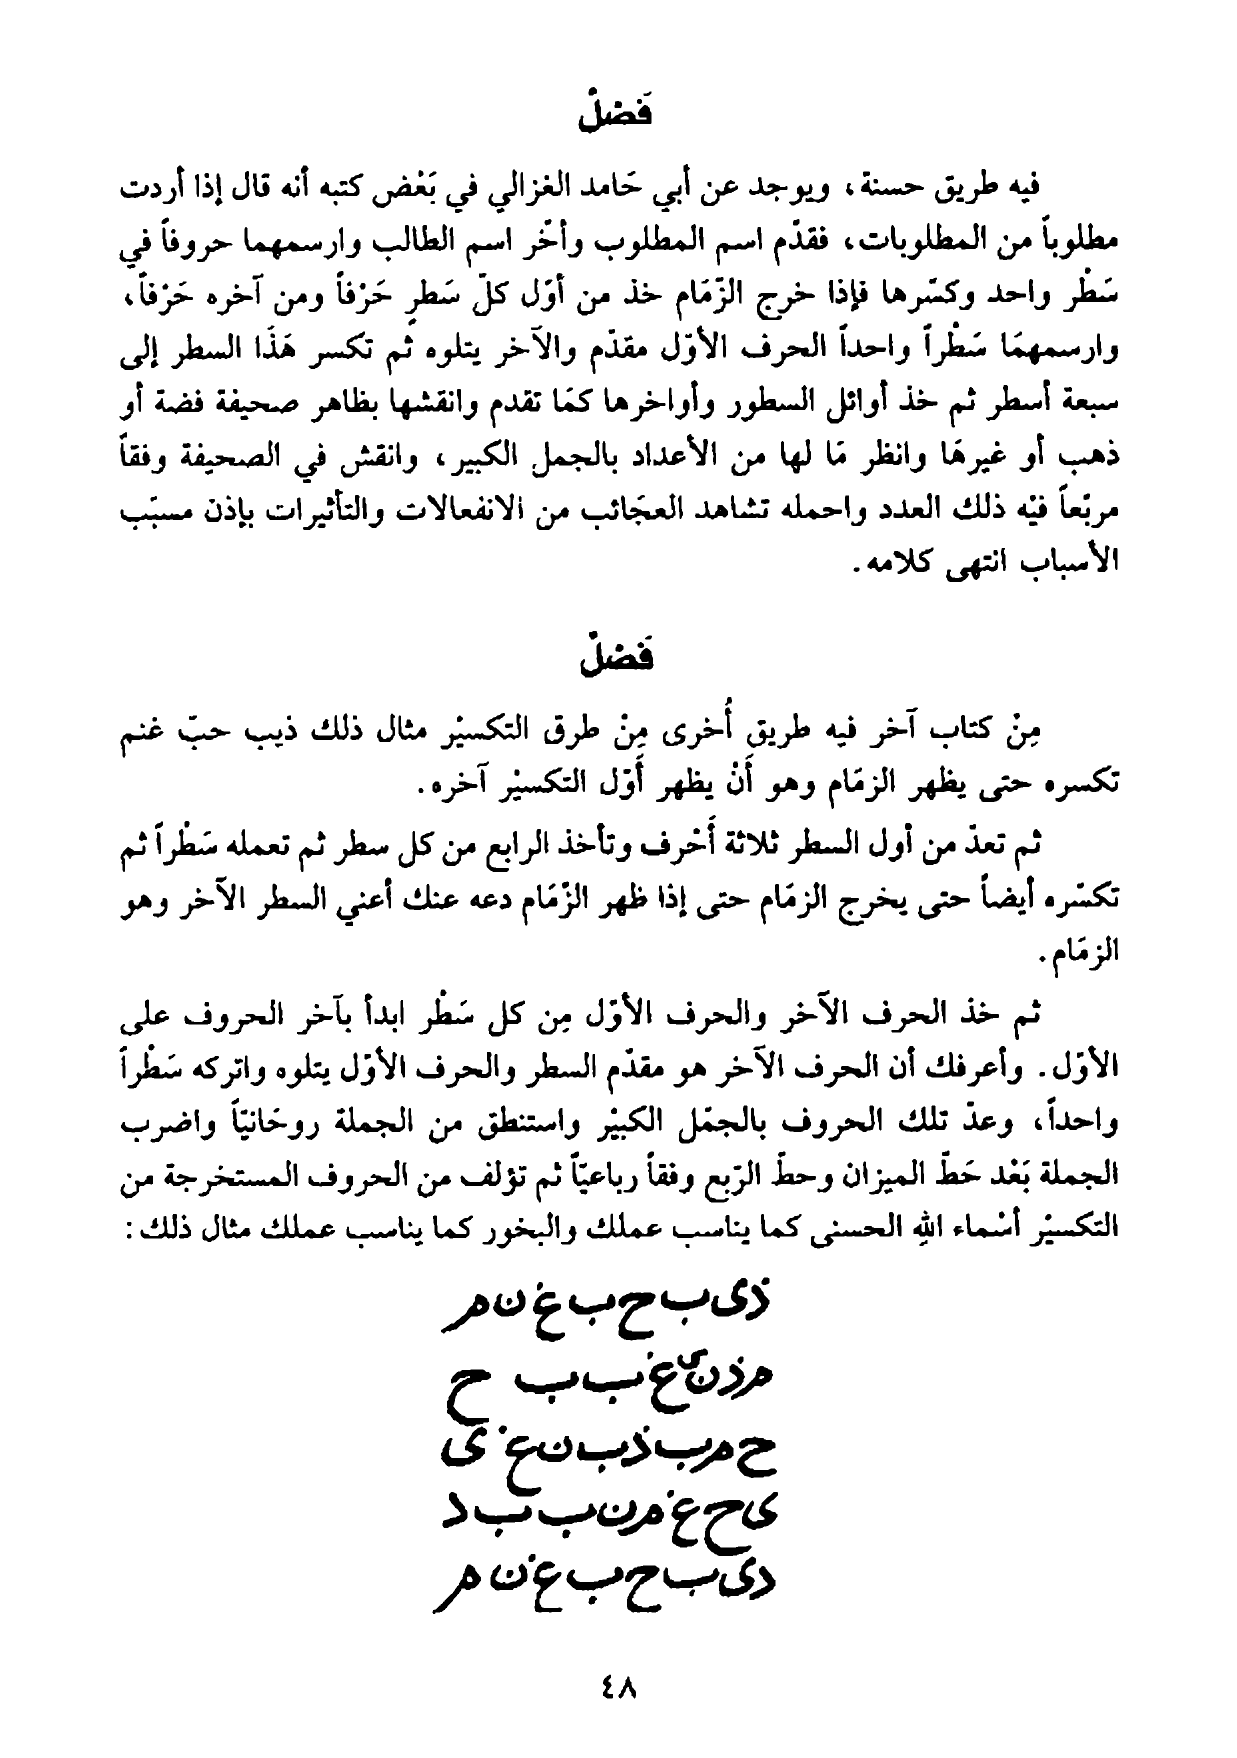 فَصْلٌ
فيه طريق حسنة، ويوجد عن أبي حَامد الغزالي في بَعْض كتبه أنه قال إذا أردت
مطلوباً من المطلوبات، فقدّم اسم المطلوب وأخّر اسم الطالب وارسمهما حروفاً في
سَطْرٍ واحد وكسّرها فإذا خرج الزّمَام خذ من أوّل كلّ سَطرٍ حَرْفاً ومن آخره حَرْفاً،
وارسمهمَا سَطْراً واحداً الحرف الأوّل مقدّم والآخر يتلوه ثم تكسر هَذَا السطر إلى
سبعة أسطر ثم خذ أوائل السطور وأواخرها كمَا تقدم وانقشها بظاهر صحيفة فضة أو
ذهب أو غيرهَا وانظر مَا لها من الأعداد بالجمل الكبير، وانقش في الصحيفة وفقاً
مربّعاً فيْه ذلك العدد واحمله تشاهد العجَائب من الانفعالات والتأثيرات بإذن مسبّب
الأسباب انتهى كلامه.
فَصْلٌ
مِنْ كتاب آخر فيه طريق أُخرى مِنْ طرق التكسيْر مثال ذلك ذيب حبّ غنم
تكسره حتى يظهر الزمَام وهو أَنْ يظهر أَوّل التكسيْر آخره.
ثم تعدّ من أول السطر ثلاثة أَحْرف وتأخذ الرابع من كل سطر ثم تعمله سَطْراً ثم
تكسّره أيضاً حتى يخرج الزمَام حتى إذا ظهر الزّمَام دعه عنك أعني السطر الآخر وهو
الزمَام.
ثم خذ الحرف الآخر والحرف الأوّل مِن كل سَطْر ابدأ بآخر الحروف على
الأوّل. وأعرفك أن الحرف الآخر هو مقدّم السطر والحرف الأوّل يتلوه واتركه سَطْراً
واحداً، وعدّ تلك الحروف بالجمّل الكبيْر واستنطق من الجملة روحَانيّاً واضرب
الجملة بَعْد حَطّ الميزان وحطّ الرّبع وفقاً رباعيّاً ثم تؤلف من الحروف المستخرجة من
التكسيْر أسْماء الله الحسنى كما يناسب عملك والبخور كما يناسب عملك مثال ذلك:
ذ ى ب ح ب غ ن م
م ذ ن ى غ ب ب ح
ح م ب ذ ب ن غ ى
ى ح غ م ن ب ب د
د ى ب ح ب غ ن م
٤٨